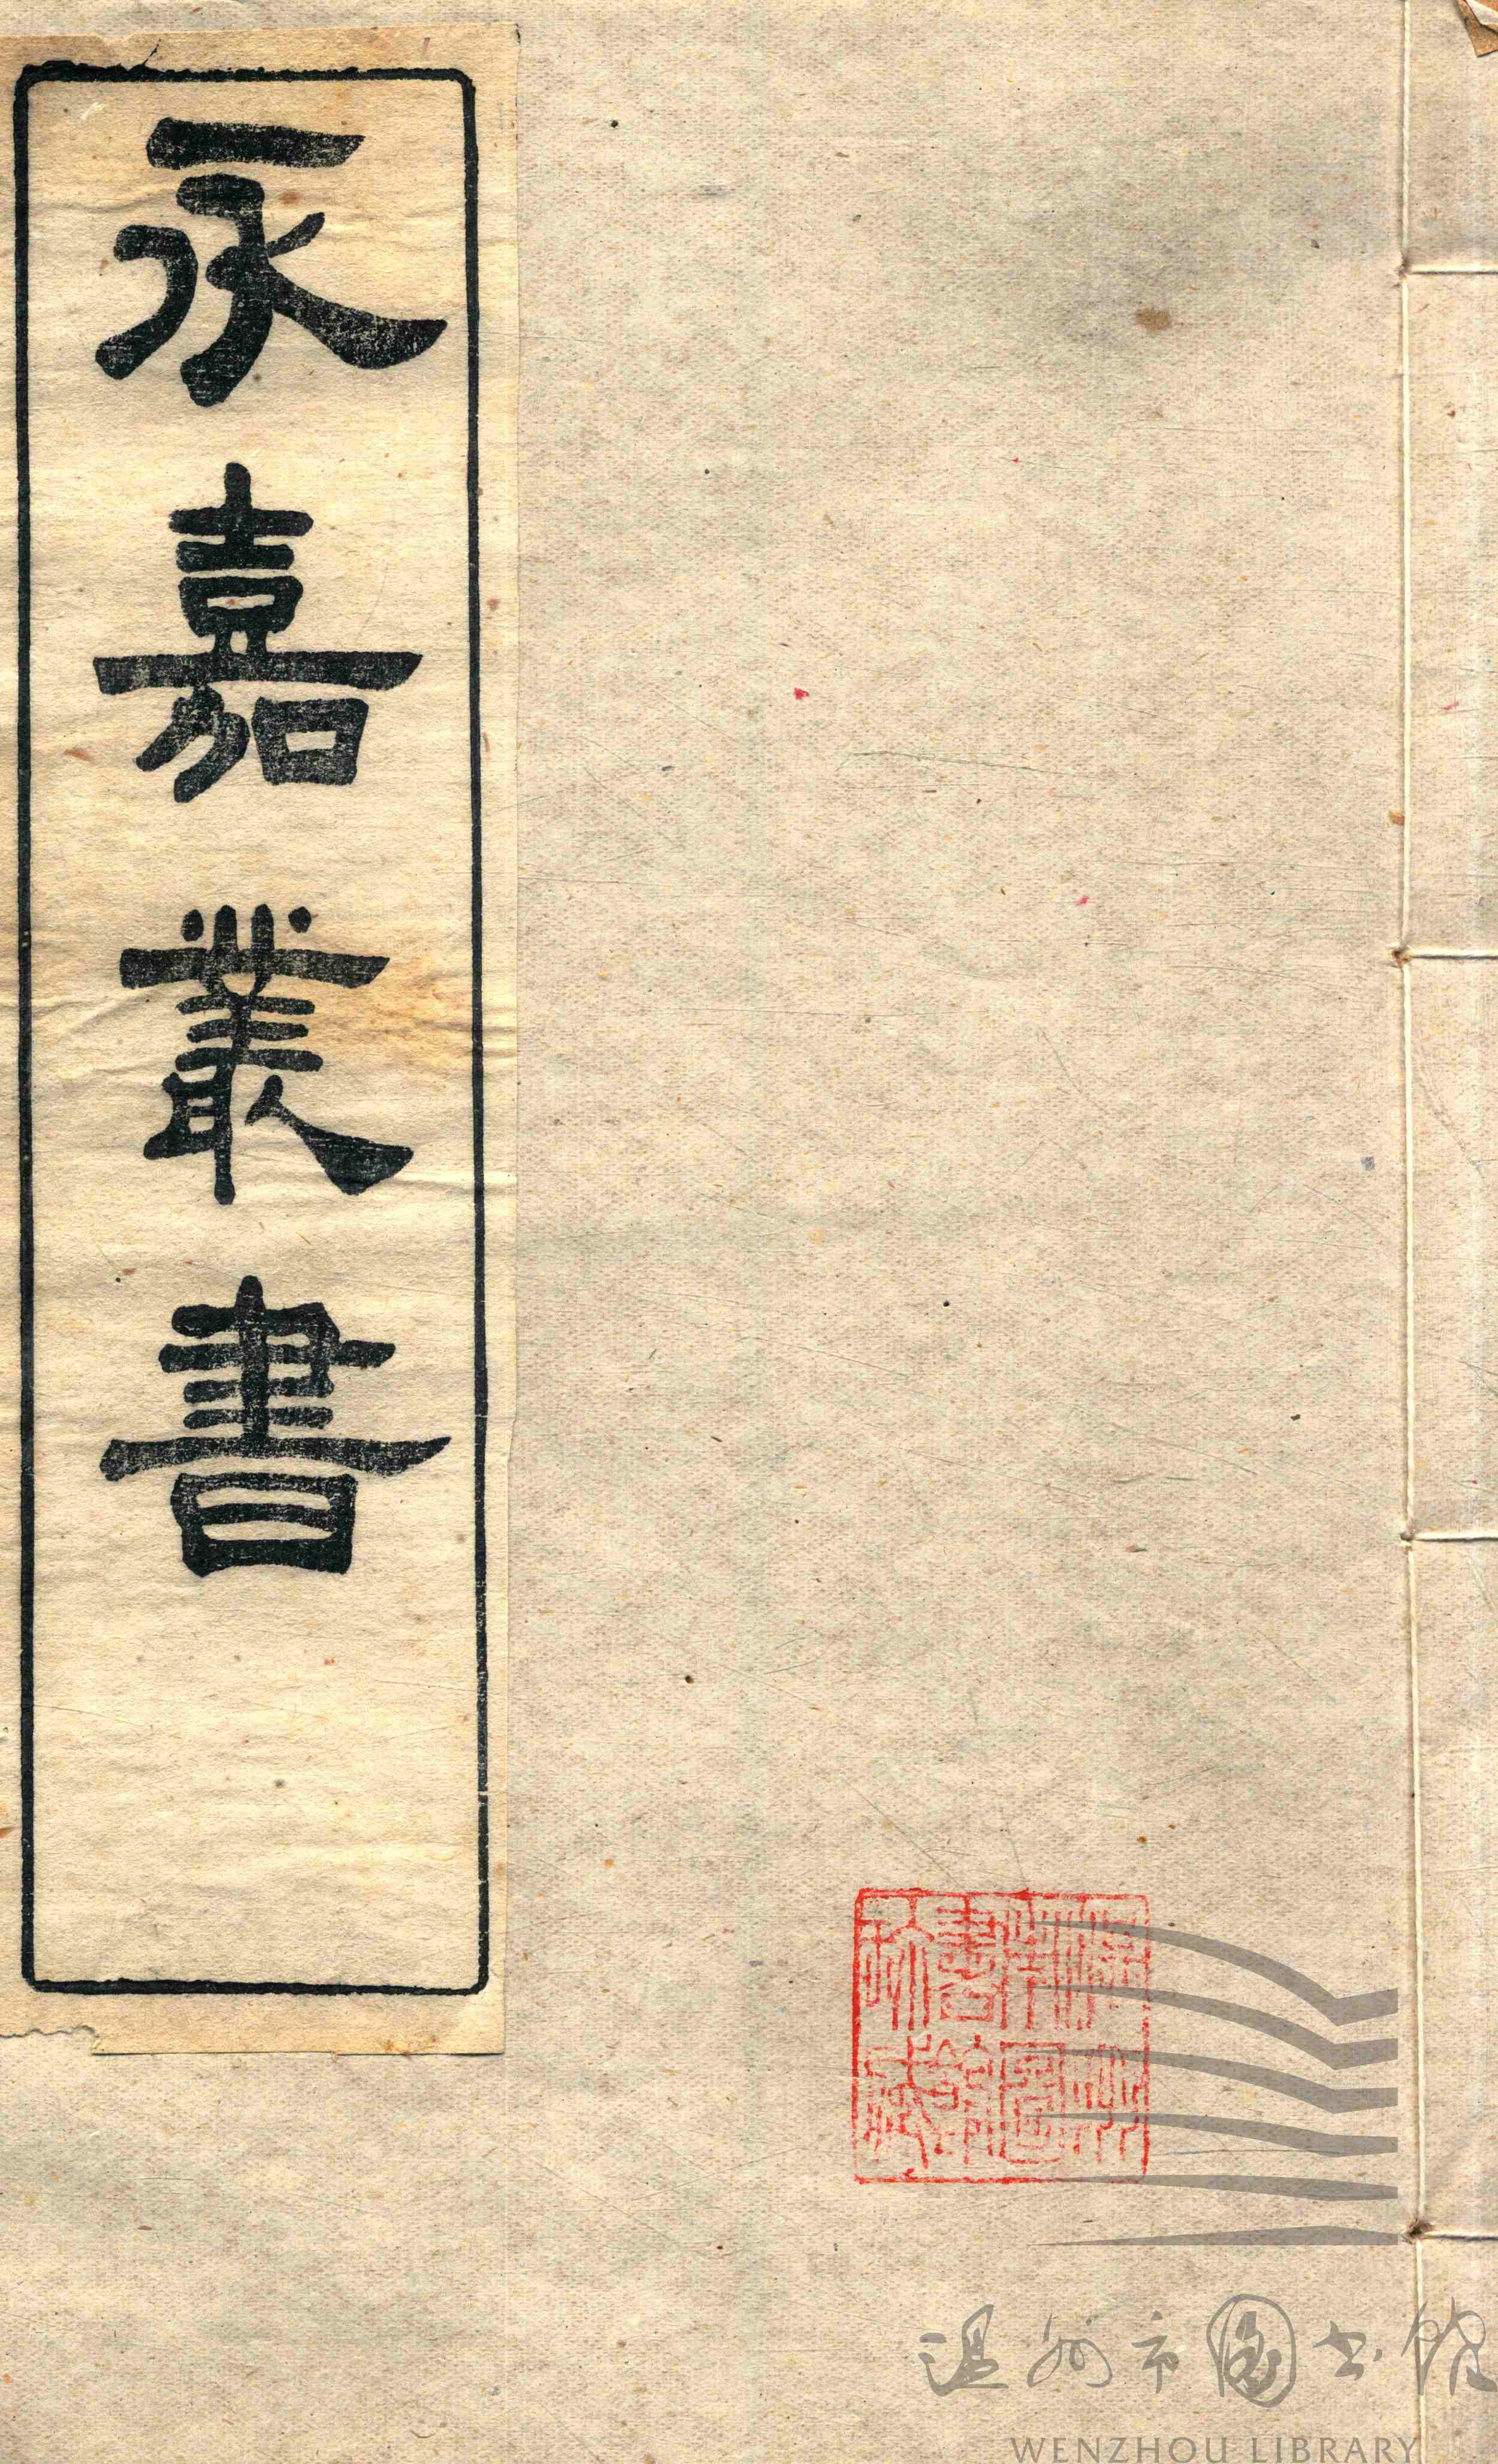 永嘉叢書
温州市圖书馆
WENZHOU LIBRARY